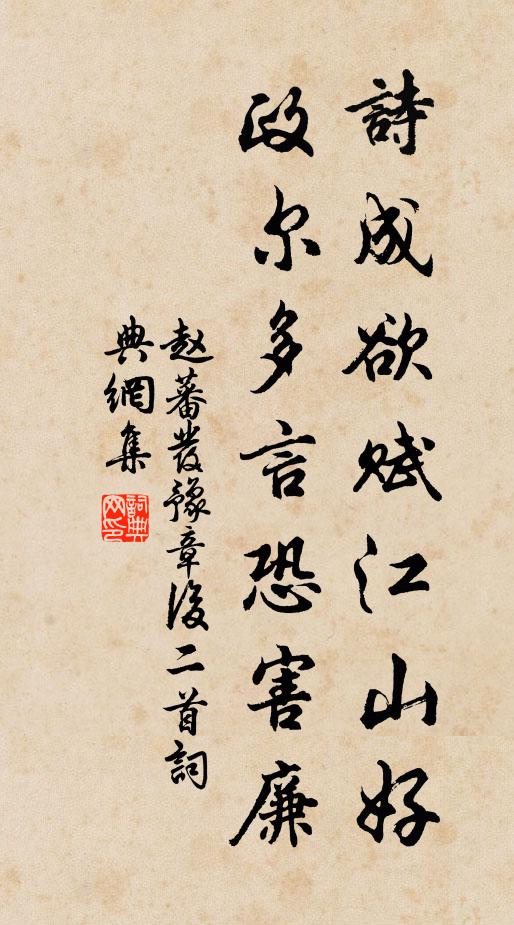 詩成欲賦江山好
政尔多言恐害廉
赵蕃發豫章後二首詞
典網集
詞典网印